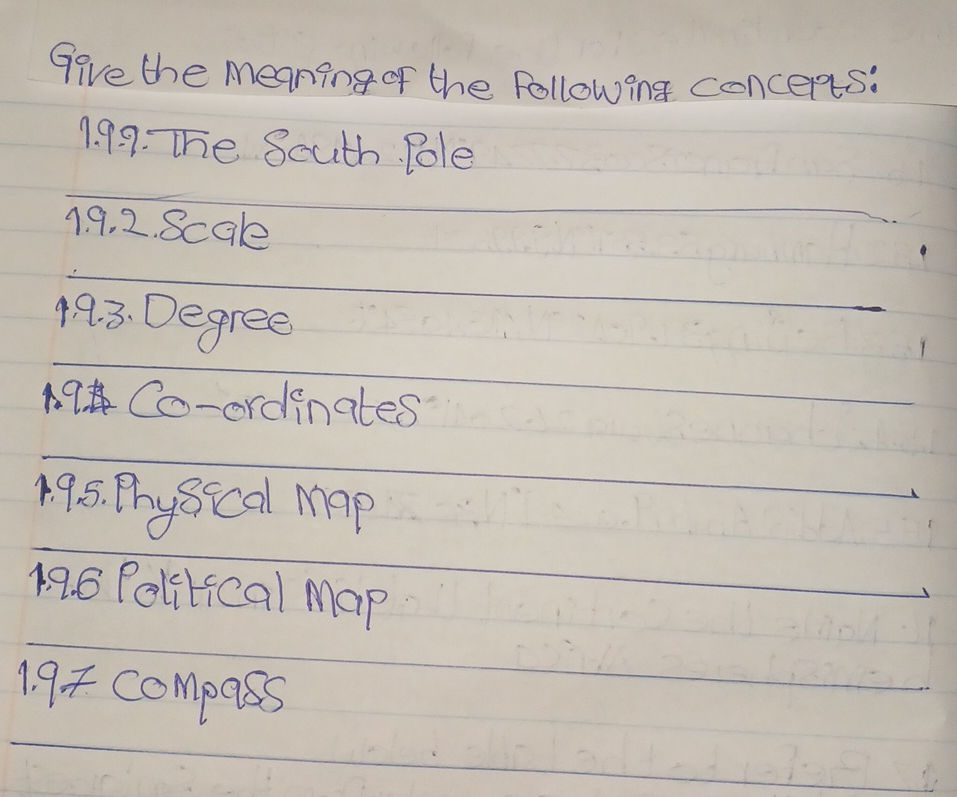 Give the meaning of the following concepts:
1.9.1. The South Pole
1.9.2. Scale
1.9.3. Degree
1.9.4 Co-ordinates
1.9.5. Physical Map
1.9.6 Political Map
1.9.7 Compass